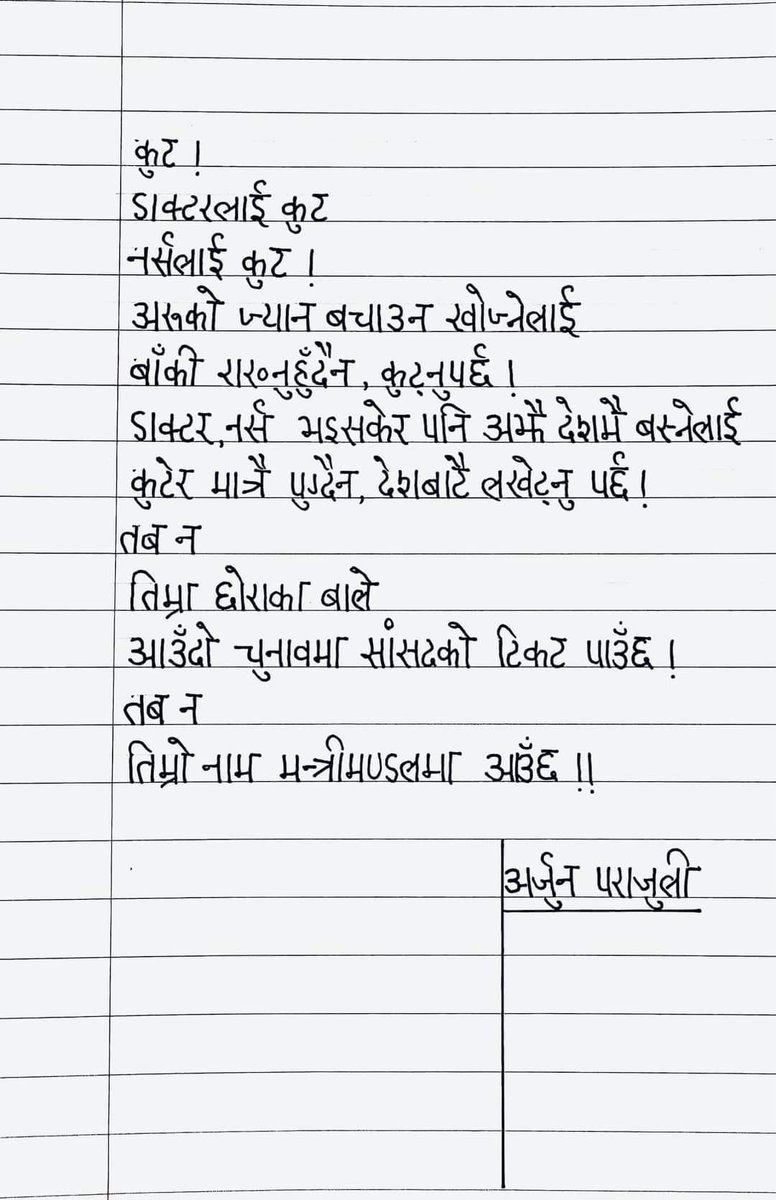 कुट !
डाक्टरलाई कुट
नर्सलाई कुट !
अरूको ज्यान बचाउन खोज्नेलाई
बाँकी राख्नुहुँदैन, कुट्नुपर्छ !
डाक्टर,नर्स भइसकेर पनि अझै देशमै बस्नेलाई
कुटेर मात्रै पुग्दैन, देशबाटै लखेट्नु पर्छ !
तब न
तिम्रा छोराका बाले
आउँदो चुनावमा सांसदको टिकट पाउँछ !
तब न
तिम्रो नाम मन्त्रीमण्डलमा आउँछ !!
अर्जुन पराजुली